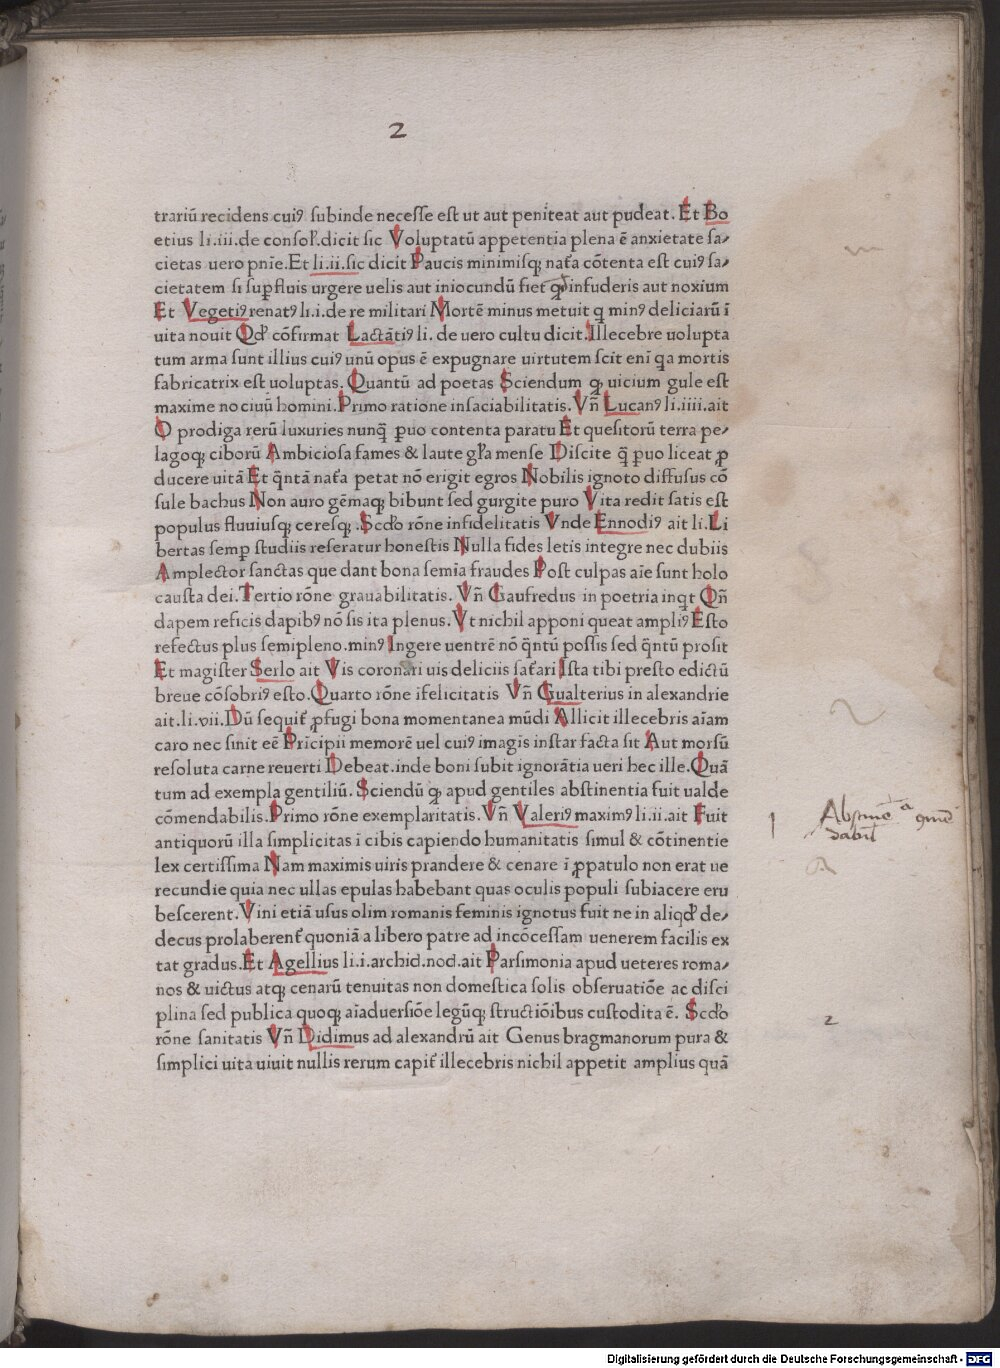 2
trariū recidens cuiꝰ subinde necesse est ut aut peniteat aut pudeat. Et Bo
etius li.iii.de consol̛.dicit sic Voluptatū appetentia plena ē anxietate sa⸗
cietas uero pnīe.Et li.ii.sic dicit Paucis minimisqꝫ nat̄a cōtenta est cuiꝰ sa⸗
cietatem si suꝑfluis urgere uelis aut iniocundū fiet qd̛ infuderis aut noxium
Et Vegetiꝰ renatꝰ li.i.de re militari Mortē minus metuit q̄ minꝰ deliciarū ī
uita nouit Qd̛ cōfirmat Lactātiꝰ li. de uero cultu dicit.Illecebre uolupta
tum arma sunt illius cuiꝰ unū opus ē expugnare uirtutem scit enī q̄a mortis
fabricatrix est uoluptas. Quantū ad poetas Sciendum qꝫ uicium gule est
maxime nociuū homini.Primo ratione insaciabilitatis.Vn̄ Lucanꝰ li.iiii.ait
O prodiga rerū luxuries nunq̄ ꝑuo contenta paratu Et quesitorū terra pe⸗
lagoqꝫ ciborū Ambiciosa fames & laute gl̄a mense Discite q̄ ꝑuo liceat ꝓ
ducere uitā Et q̄ntā nat̄a petat nō erigit egros Nobilis ignoto diffusus cō
sule bachus Non auro gēmaqꝫ bibunt sed gurgite puro Vita redit satis est
populus fluuiusqꝫ ceresqꝫ .Scd̛o rōne infidelitatis Vnde Ennodiꝰ ait li.Li
bertas semꝑ studiis referatur honestis Nulla fides letis integre nec dubiis
Amplector sanctas que dant bona semīa fraudes Post culpas aīe sunt holo
causta dei.Tertio rōne grauabilitatis. Vn̄ Gaufredus in poetria inq̄t Qn̄
dapem reficis dapibꝰ nō sis ita plenus.Vt nichil apponi queat ampliꝰ Esto
refectus plus semipleno.minꝰ Ingere uentrē nō q̄ntū possis sed q̄ntū prosit
Et magister Serlo ait Vis coronari uis deliciis sat̄ari Ista tibi presto edictū
breue cōsobriꝰ esto.Quarto rōne ifelicitatis Vn̄ Gualterius in alexandrie
ait.li.vii.Dū sequit̄ ꝓfugi bona momentanea mūdi Allicit illecebris aīam
caro nec sinit eē Prīcipii memorē uel cuiꝰ imagīs instar facta sit Aut morsū
resoluta carne reuerti Debeat.inde boni subit ignorātia ueri hec ille.Quā
tum ad exempla gentiliū. Sciendū qꝫ apud gentiles abstinentia fuit ualde
cōmendabilis.Primo rōne exemplaritatis.Vn̄ Valeriꝰ maximꝰ li.ii.ait Fuit
antiquorū illa simplicitas ī cibis capiendo humanitatis simul & cōtinentie
lex certissima Nam maximis uiris prandere & cenare ī ꝓpatulo non erat ue
recundie quia nec ullas epulas habebant quas oculis populi subiacere eru
bescerent.Vini etiā usus olim romanis feminis ignotus fuit ne in aliqd̛ de⸗
decus prolaberent̄ quoniā a libero patre ad incōcessam uenerem facilis ex
tat gradus.Et Agellius li.i.archid.nod.ait Parsimonia apud ueteres roma⸗
nos & uictus atqꝫ cenarū tenuitas non domestica solis obseruatiōe ac disci
plina sed publica quoqꝫ aīaduersiōe legūqꝫ structiōibus custodita ē. Scd̛o
rōne sanitatis Vn̄ Didimus ad alexandrū ait Genus bragmanorum pura &
simplici uita uiuit nullis rerum capit̄ illecebris nichil appetit amplius quā
2
Digitalisierung gefördert durch die Deutsche Forschungsgemeinschaft - DFG